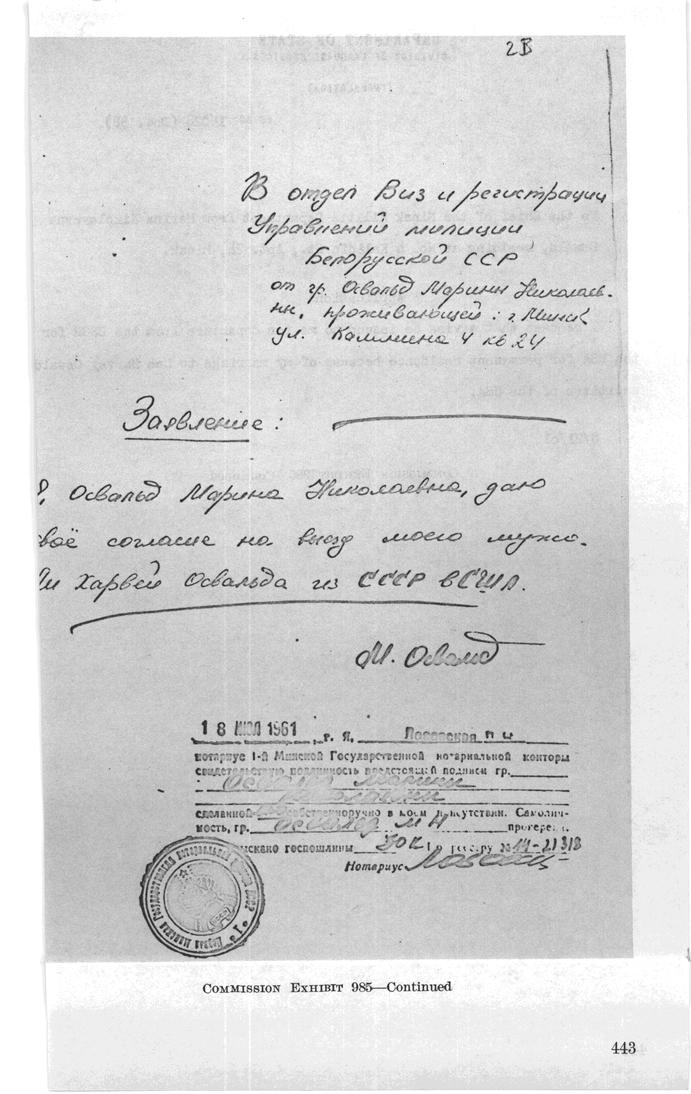 2B
В отдел Виз и регистрации
Управлений милиции
Белорусской ССР
от гр. Освальд Марины Николаев-
ны, проживающей: г. Минск
ул. Калинина 4 кв 24
Заявление:
Я, Освальд Марина Николаевна, даю
своё согласие на выезд моего мужа
Ли Харвей Освальда из СССР в США.
М. Освальд
18 ИЮЛ 1961 г. Я,
нотариус 1-й Минской Государственной нотариальной конторы
свидетельствую подлинность предстоящей подписи гр.
Освальд Марины
Николаевны
сделанной собственноручно в моем присутствии. Самолич-
ность, гр. Освальд М Н проверена.
Взыскано госпошлины 30 к По реестру № 14-21318
Нотариус
COMMISSION EXHIBIT 985—Continued
443